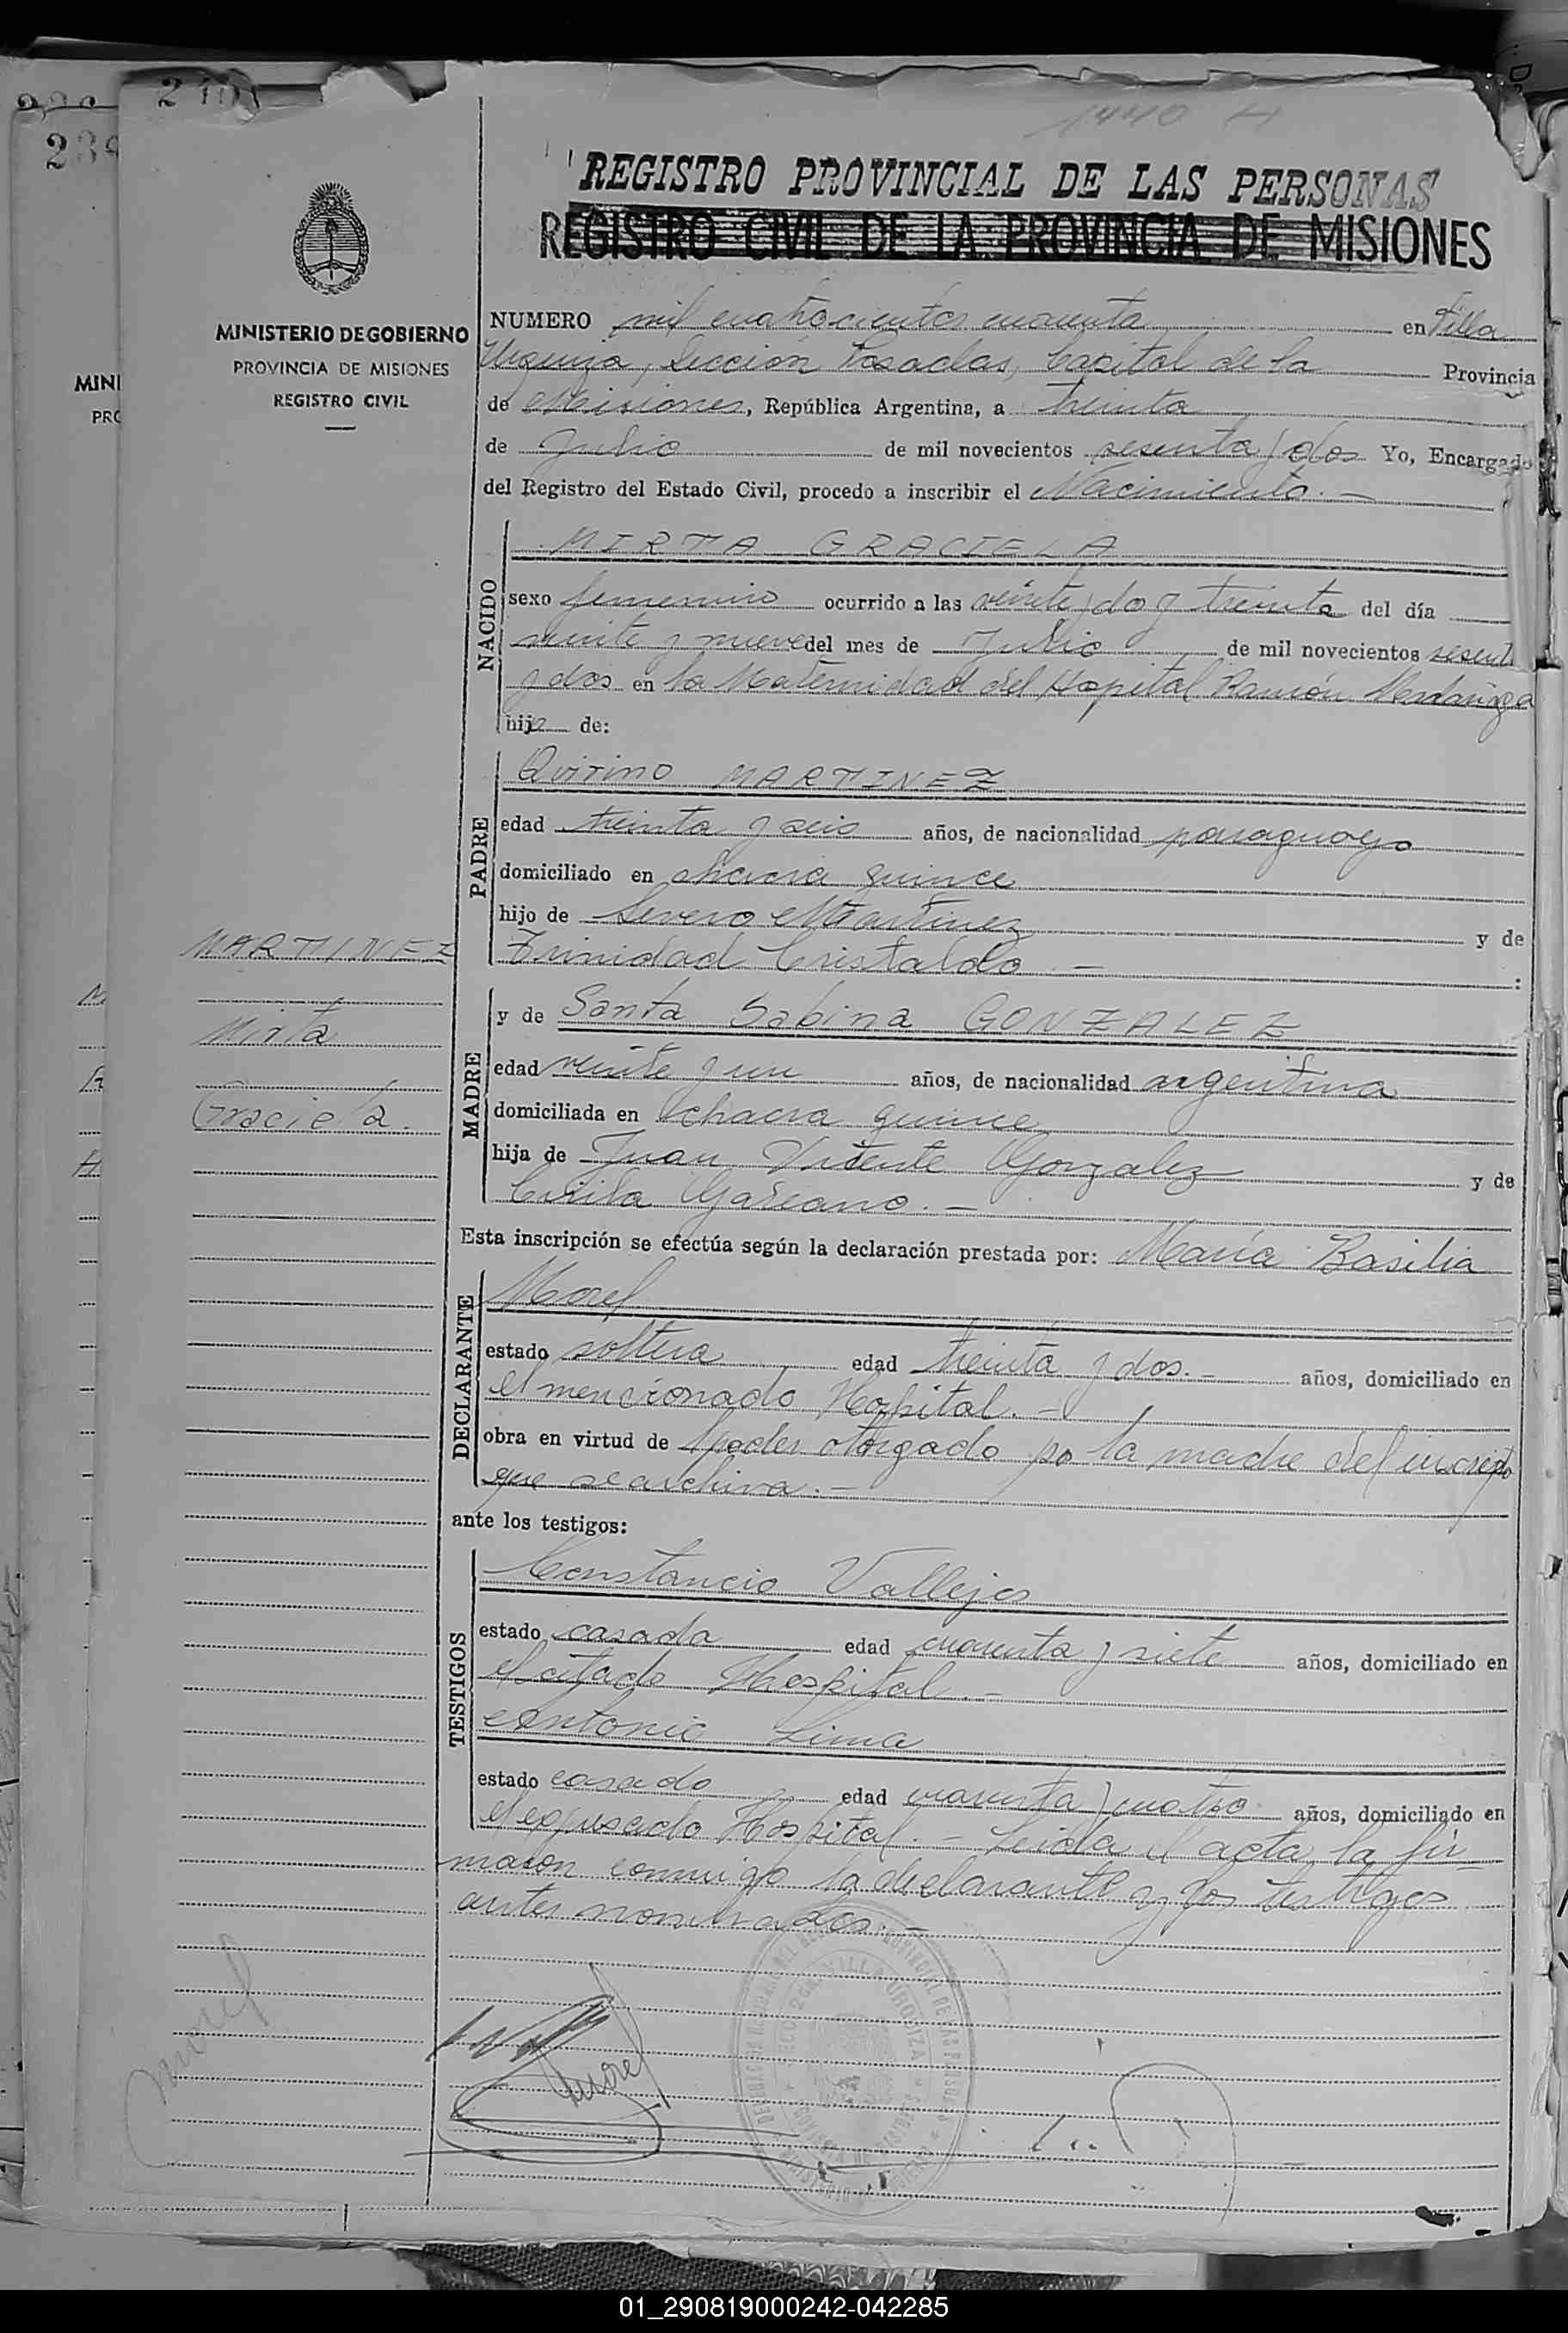 240
234
1440 H
REGISTRO PROVINCIAL DE LAS PERSONAS
REGISTRO CIVIL DE LA PROVINCIA DE MISIONES
MINISTERIO DE GOBIERNO
PROVINCIA DE MISIONES
REGISTRO CIVIL
MINI
PRO
NUMERO mil cuatrocientos cuarenta en Villa
Urquiza, Sección Posadas, Capital de la Provincia
de Misiones, República Argentina, a treinta
de Julio de mil novecientos sesenta y dos Yo, Encargado
del Registro del Estado Civil, procedo a inscribir el Nacimiento. -
NACIDO
MIRTA GRACIELA
sexo femenino ocurrido a las veinte y dos y treinta del día
veinte y nueve del mes de Julio de mil novecientos sesenta
y dos en la Maternidad del Hospital Ramón Madariaga
hija de:
PADRE
Quirino MARTINEZ
edad treinta y seis años, de nacionalidad paraguayo
domiciliado en chacra quince
hijo de Severo Martinez y de
Trinidad Cristaldo. -
MARTINEZ
Mirta
Graciela.
MADRE
y de Santa Sabina GONZALEZ
edad veinte y un años, de nacionalidad argentina
domiciliada en chacra quince
hija de Juan Vicente Gonzalez y de
Galeano. -
Esta inscripción se efectúa según la declaración prestada por: María Basilia
DECLARANTE
Morel
estado soltera edad treinta y dos. - años, domiciliado en
el mencionado Hospital. -
obra en virtud de poder otorgado po la madre del inscripto
que se archiva. -
ante los testigos:
TESTIGOS
Constancio Vallejos
estado casada edad cuarenta y siete años, domiciliado en
el citado Hospital. -
Antonio Lima
estado casado edad cuarenta y cuatro años, domiciliado en
el expresado Hospital. - Leída el acta, la fir
maron conmigo la declarante y los testigos
antes nombrados. -
Morel
Morel
VILLA URQUIZA
01_290819000242-042285